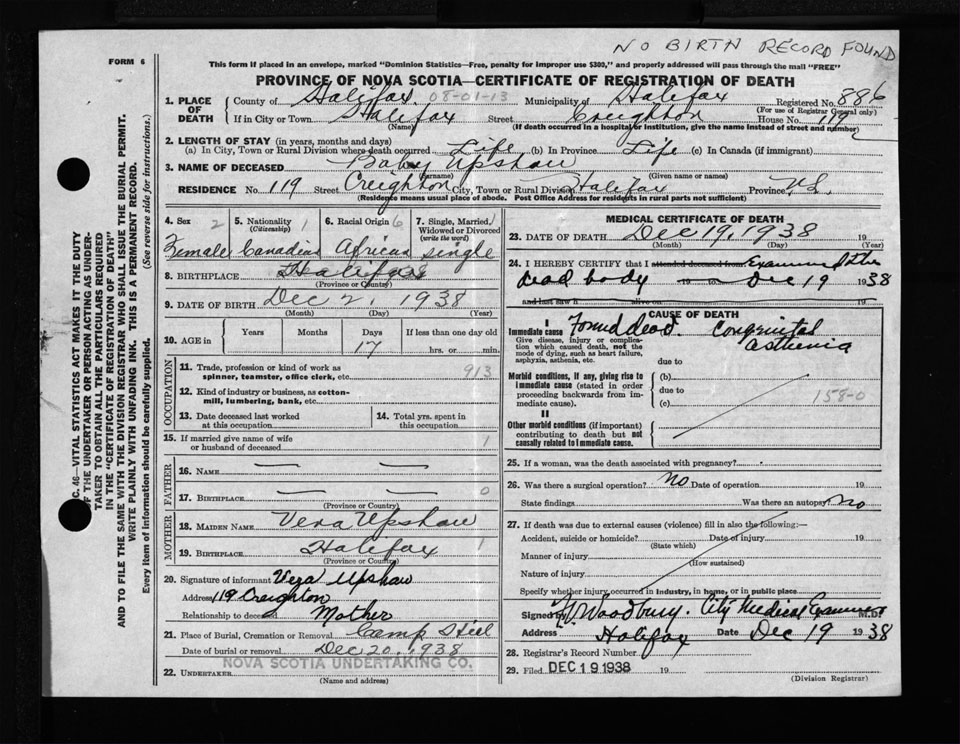 NO BIRTH RECORD FOUND
FORM 6
This form if placed in an envelope, marked "Dominion Statistics—Free, penalty for improper use $300," and properly addressed will pass through the mail "FREE"
PROVINCE OF NOVA SCOTIA—CERTIFICATE OF REGISTRATION OF DEATH
1. PLACE OF DEATH County of Halifax 08-01-13 Municipality of Halifax Registered No. 886
(For use of Registrar General only)
If in City or Town Halifax Street Creighton House No. 119
(Name) (If death occurred in a hospital or institution, give the name instead of street and number)
2. LENGTH OF STAY (in years, months and days)
(a) In City, Town or Rural Division where death occurred Life (b) In Province Life (c) In Canada (if immigrant)
3. NAME OF DECEASED Baby Upshaw
(Surname) (Given name or names)
RESIDENCE No. 119 Street Creighton City, Town or Rural Division Halifax Province N.S.
(Residence means usual place of abode. Post Office Address for residents in rural parts not sufficient)
4. Sex 2 5. Nationality 1 6. Racial Origin 6 7. Single, Married, 1
(Citizenship) Widowed or Divorced
(write the word)
Female Canadian African single
8. BIRTHPLACE Halifax
(Province or County)
9. DATE OF BIRTH Dec 2, 1938
(Month) (Day) (Year)
10. AGE in Years Months Days If less than one day old
17 hrs. or min.
OCCUPATION
11. Trade, profession or kind of work as spinner, teamster, office clerk, etc. 913
12. Kind of industry or business, as cotton-mill, lumbering, bank, etc.
13. Date deceased last worked at this occupation
14. Total yrs. spent in this occupation
15. If married give name of wife or husband of deceased 1
FATHER
16. NAME — —
17. BIRTHPLACE — — 0
(Province or County)
MOTHER
18. MAIDEN NAME Vera Upshaw
19. BIRTHPLACE Halifax 1
(Province or County)
20. Signature of informant Vera Upshaw
Address 119 Creighton
Relationship to deceased Mother
21. Place of Burial, Cremation or Removal Camp Hill
Date of burial or removal Dec 20, 1938
NOVA SCOTIA UNDERTAKING CO.
22. UNDERTAKER
(Name and address)
MEDICAL CERTIFICATE OF DEATH
23. DATE OF DEATH Dec 19, 1938 19
(Month) (Day) (Year)
24. I HEREBY CERTIFY that I attended deceased from Examined the
dead body 19 to Dec 19 1938
and last saw h alive on 19
CAUSE OF DEATH
I
Immediate cause Found dead. Congenital
asthenia
Give disease, injury or complication which caused death, not the mode of dying, such as heart failure, asphyxia, asthenia, etc.
due to
Morbid conditions, if any, giving rise to immediate cause (stated in order proceeding backwards from immediate cause).
(b)
due to
(c) 158-0
II
Other morbid conditions (if important) contributing to death but not causally related to immediate cause.
25. If a woman, was the death associated with pregnancy?
26. Was there a surgical operation? No Date of operation 19
State findings Was there an autopsy? No
27. If death was due to external causes (violence) fill in also the following:—
Accident, suicide or homicide? Date of injury 19
(State which)
Manner of injury
(How sustained)
Nature of injury
Specify whether injury occurred in industry, in home, or in public place
Signed by Woodbury. City Medical Examiner M.D.
Address Halifax Date Dec 19 1938
28. Registrar's Record Number
29. Filed DEC 19 1938 19
(Division Registrar)
C. 46—VITAL STATISTICS ACT MAKES IT THE DUTY
OF THE UNDERTAKER OR PERSON ACTING AS UNDER-
TAKER TO OBTAIN ALL THE PARTICULARS REQUIRED
IN THE "CERTIFICATE OF REGISTRATION OF DEATH"
AND TO FILE THE SAME WITH THE DIVISION REGISTRAR WHO SHALL ISSUE THE BURIAL PERMIT.
WRITE PLAINLY WITH UNFADING INK. THIS IS A PERMANENT RECORD.
Every item of information should be carefully supplied. (See reverse side for instructions.)